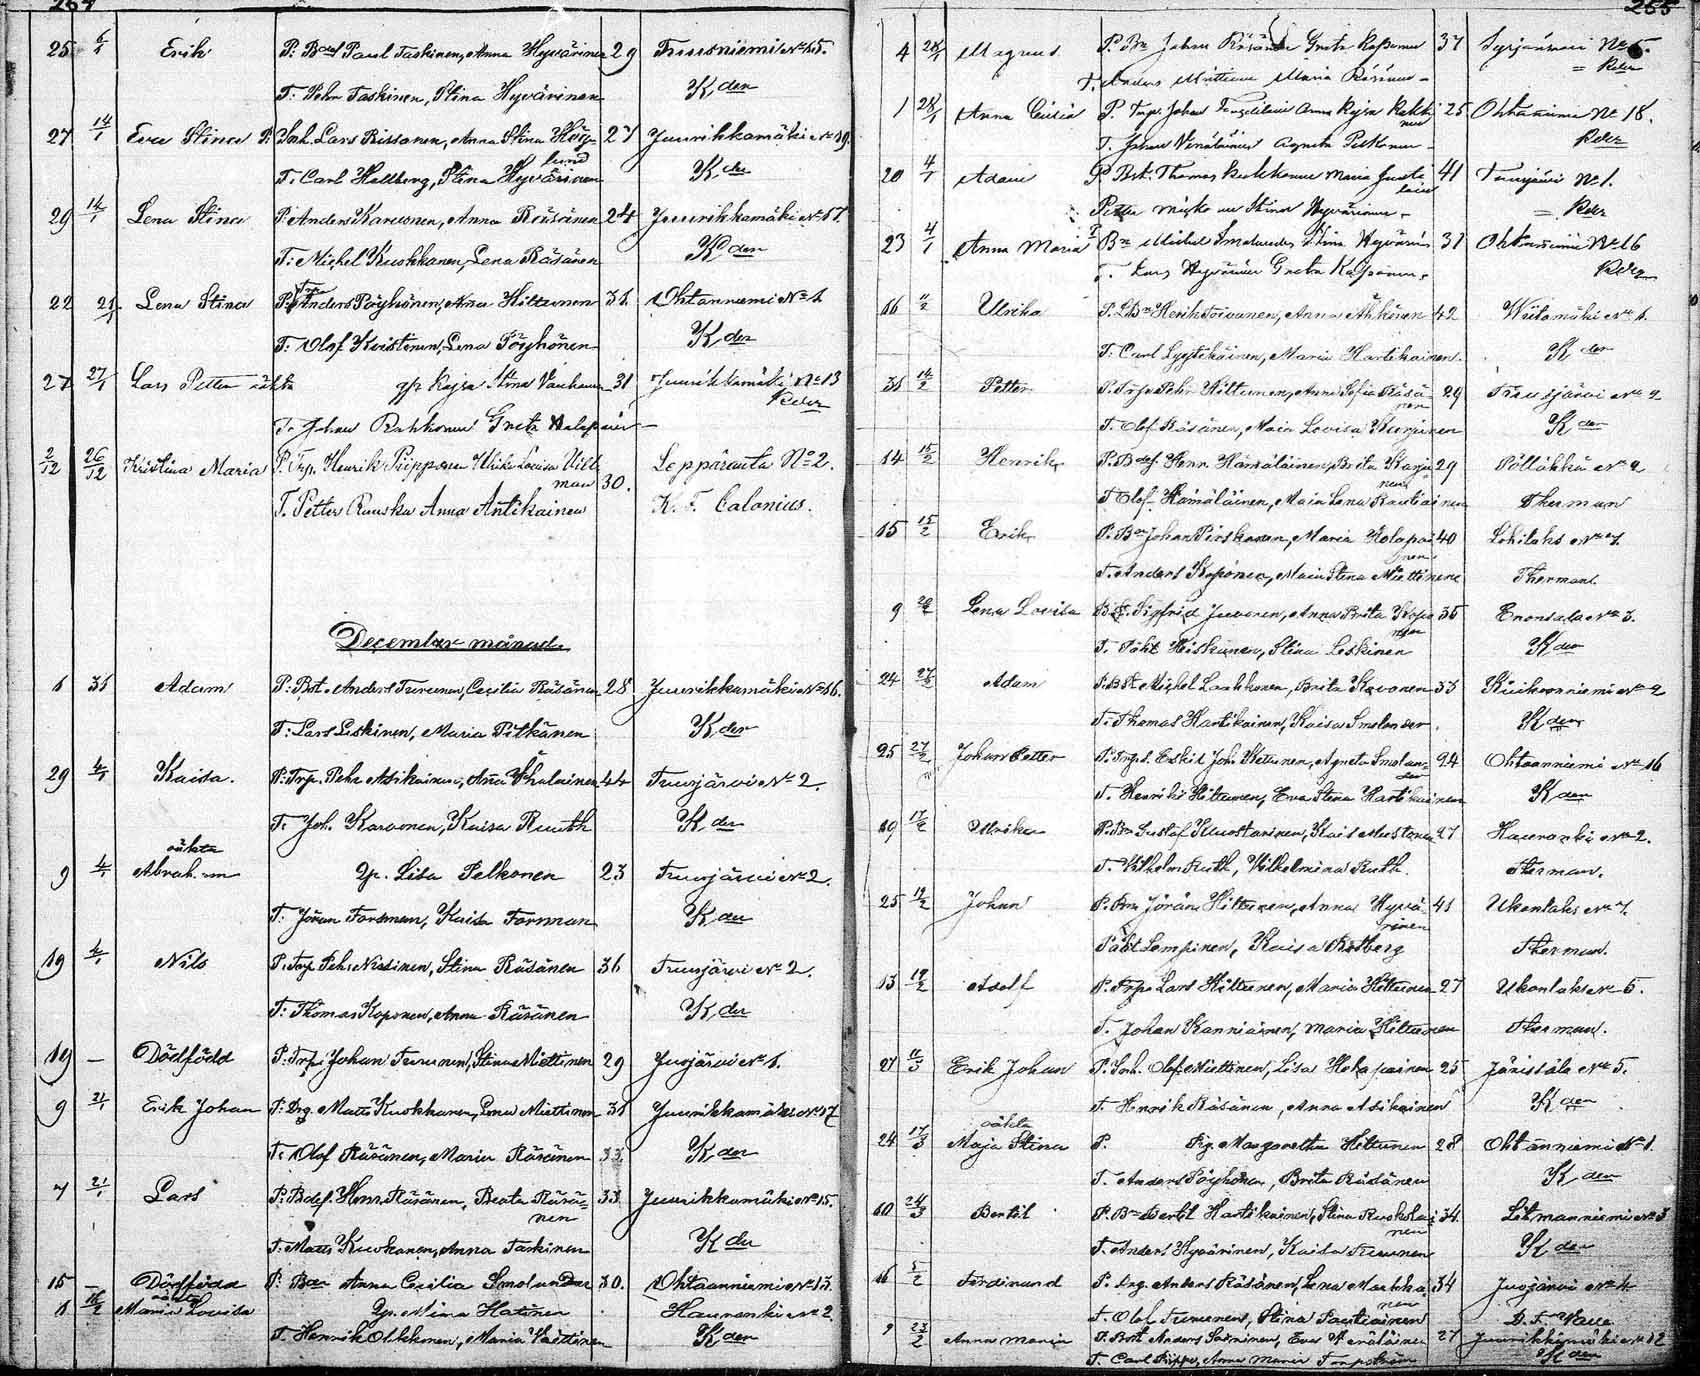 264
25 6/1 Erik P. Bdef Paul Taskinen, Anna Hyvärinen 29 Tuusniemi No 15.
T: Pehr Taskinen, Stina Hyvärinen K der
27 14/1 Eva Stina P. Inh. Lars Rissanen, Anna Stina Hög- 27 Juurikkamäki No 19.
lund
T: Carl Hallberg, Stina Hyvärinen K der
29 14/1 Lena Stina P: Anders Karvonen, Anna Räsänen 24 Juurikkamäki No 17.
T: Michel Kuokkanen, Lena Räsänen K der
22 21/1 Lena Stina P: Anders Pöyhönen, Anna Hiltunen 31. Ohtaniemi No 1.
T: Olof Koistinen, Lena Pöyhönen K der
27 27/1 Lars Petter oäkta qp Kajsa Stina 31 Juurikkamäki No 13
K der
T: Johan Greta
2/12 26/12 Kristina Maria P. Trp. Henrik Piipponen Ulrika Lovisa Vill-
man 30. Leppäranta No 2.
T. Petter Ruuska Anna Antikainen K. F. Calonius.
December månad.
1 31 Adam P: Bst. Anders Turunen, Cecilia Räsänen 28 Juurikkamäki No 16.
T: Lars Leskinen, Maria Pitkänen K der
29 4/1 Kaisa. P: Trp. Pehr Asikainen, Anna 44 Tuusjärvi No 2.
T: Joh. Karvonen, Kaisa Ruuth K der
oäkta
9 4/1 Abraham Qp. Lisa Pelkonen 23 Tuusjärvi No 2.
T: Jöran Forsman, Kaisa Forsman K der
19 4/1 Nils P: Trp. Pehr Nissinen, Stina Räsänen 36 Tuusjärvi No 2.
T: Thomas Koponen, Anna Räsänen K der
19 — Dödfödd P: Trp. Johan Turunen, Stina Miettinen 29 Juojärvi No 1.
9 21/1 Erik Johan P: Drg. Matts Kuokkanen, Lena Miettinen 31 Juurikkamäki No 17
T: Olof Räsänen, Maria Räsänen 33. K der
7 21/1 Lars P: Bdef. Henr. Räsänen, Beata Räsä- 33. Juurikkamäki No 15.
nen
T: Matts Kuokkanen, Anna Taskinen K der
15 — Dödfödd P. Bdr Anna Cecilia Smolander 30. Ohtaanniemi No 13.
oäkta
1 16/2 Maria Lovisa Qp. Stina Hatinen Hauranki No 2.
T. Henrik Olkkonen, Maria K der
265
4 28/1 Magnus P. Bn Johan Räsänen Greta Kaponen 37 Syrjäniemi No 6.
T. Anders Miettinen Maria Räsänen = K der
1 28/1 Anna Cecilia P. Trp. Johan Anna Kajsa 25 Ohtaniemi No 18.
T. Johan Venäläinen Agneta Pitkänen K der
20 4/1 Adam P Bst. Thomas Kuokkanen Maria 41 Tuusjärvi No 1.
Petter Stina Hyvärinen = K der
23 4/1 Anna Maria P Bn Michel Smolander Stina Hyvärin 31 Ohtaniemi No 16
T. Lars Hyvärinen Greta Kaponen. K der
16 11/2 Ulrika P. LBn Henrik Toivanen, Anna Ahkinen 42 Wiitamäki No 1.
T. Carl Lyytikäinen, Maria Hartikainen. K der
31 14/2 Petter P. Trp. Pehr Hiltunen, Anna Sofia Räsä- 29 Tuusjärvi No 2
nen
T. Olof Räsänen, Maia Lovisa K der
14 15/2 Henrik P. Bdef. Henr. Hämäläinen, Brita Karja- 29 Pölläkkä No 2
nen
T. Olof Hämäläinen, Maia Lena Rautiainen Therman
15 15/2 Erik P. Bn Johan Pirskanen, Maria Holopai- 40 Lohilaks No 7.
nen
T. Anders Koponen, Maia Stina Miettinen Therman.
9 Lena Lovisa B.d. Sigfrid Juvonen, Anna Brita Kapo- 35 Enonsalo No 3.
nen
T. Påhl Heiskanen, Stina Leskinen K der
24 27/2 Adam P. Bst. Michel Laakkonen, Brita Kavonen 33 Kuikonniemi No 2
T. Thomas Hartikainen, Kaisa Smolander. K der
25 27/2 Johan Petter P. Trp. d. Eskil Joh. Hiltunen, Agneta Smolan- 24 Ohtaanniemi No 16
der
T. Henrik Hiltunen, Eva Stina Hartikainen K der
19 17/2 Ulrika P. Bn Gustaf Kuostarinen, Kais Mustonen 27 Hauranki No 2.
T. Vilhelm Ruth, Vilhelmina Ruth. Therman.
25 19/2 Johan P. Bn Jöran Hiltunen, Anna Hyvä- 41 Ukonlaks No 7.
rinen
Påhl Lempinen, Kaisa Rotberg Therman.
13 19/2 Adolf P. Trp. Lars Hiltunen, Maria Hiltunen 27 Ukonlaks No 5.
T. Johan Kanniainen, Maria Hiltunen Therman.
27 11/3 Erik Johan P. Inh. Olof Miettinen, Lisa Holopainen 25 Jänissalo No 5.
T. Henrik Räsänen, Anna Asikainen K der
oäkta
24 17/3 Maja Stina P. Pig. Margaretha Hiltunen 28 Ohtanniemi No 1.
T. Anders Pöyhönen, Brita Räsänen K der
10 24/3 Bertil P. Bn Bertil Hartikainen, Stina Ruokolai- 34. Litmanniemi No 3
nen
T. Anders Hyvärinen, Kaisa Turunen K der
16 5/2 Ferdinand P. Drg. Anders Räsänen, Lena 34 Juojärvi No 4.
nen
T. Olof Turunen, Stina Rautiainen D. F.
9 23/2 Anna Maria P. Bst. Anders Eva Venäläinen 27 Juurikkamäki No 12
T. Carl Piippo, Anna Maria K der